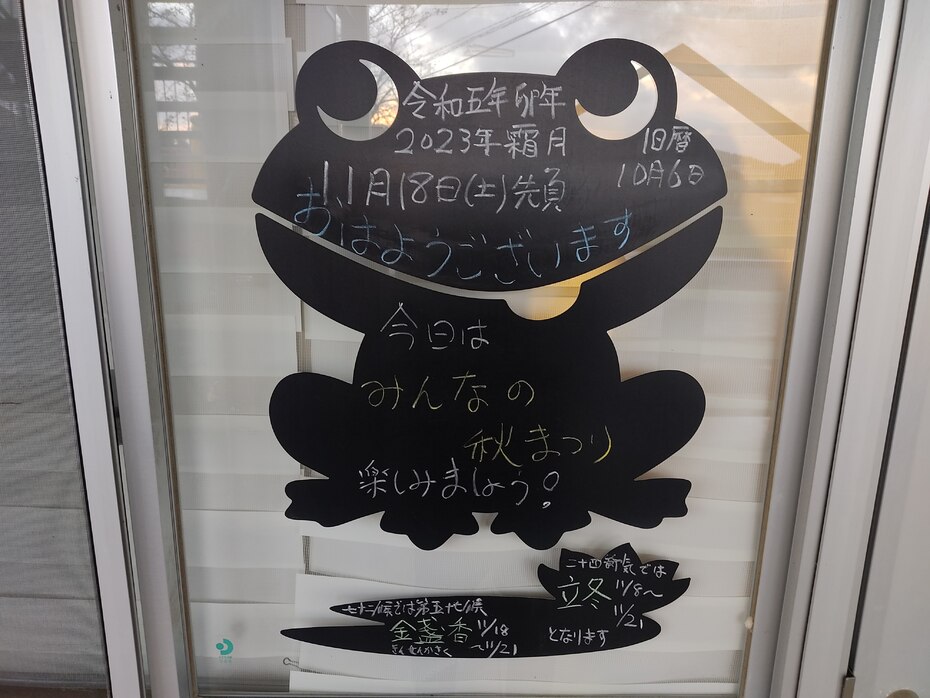 令和五年卯年
2023年霜月
旧暦
11月18日(土)先負
10月6日
おはようございます
今日は
みんなの
秋まつり
楽しみましょう!
二十四節気では
立冬 11/8〜
11/21
となります
七十二候では第五七候
金盞香 11/18
〜11/21
きんせんかさく